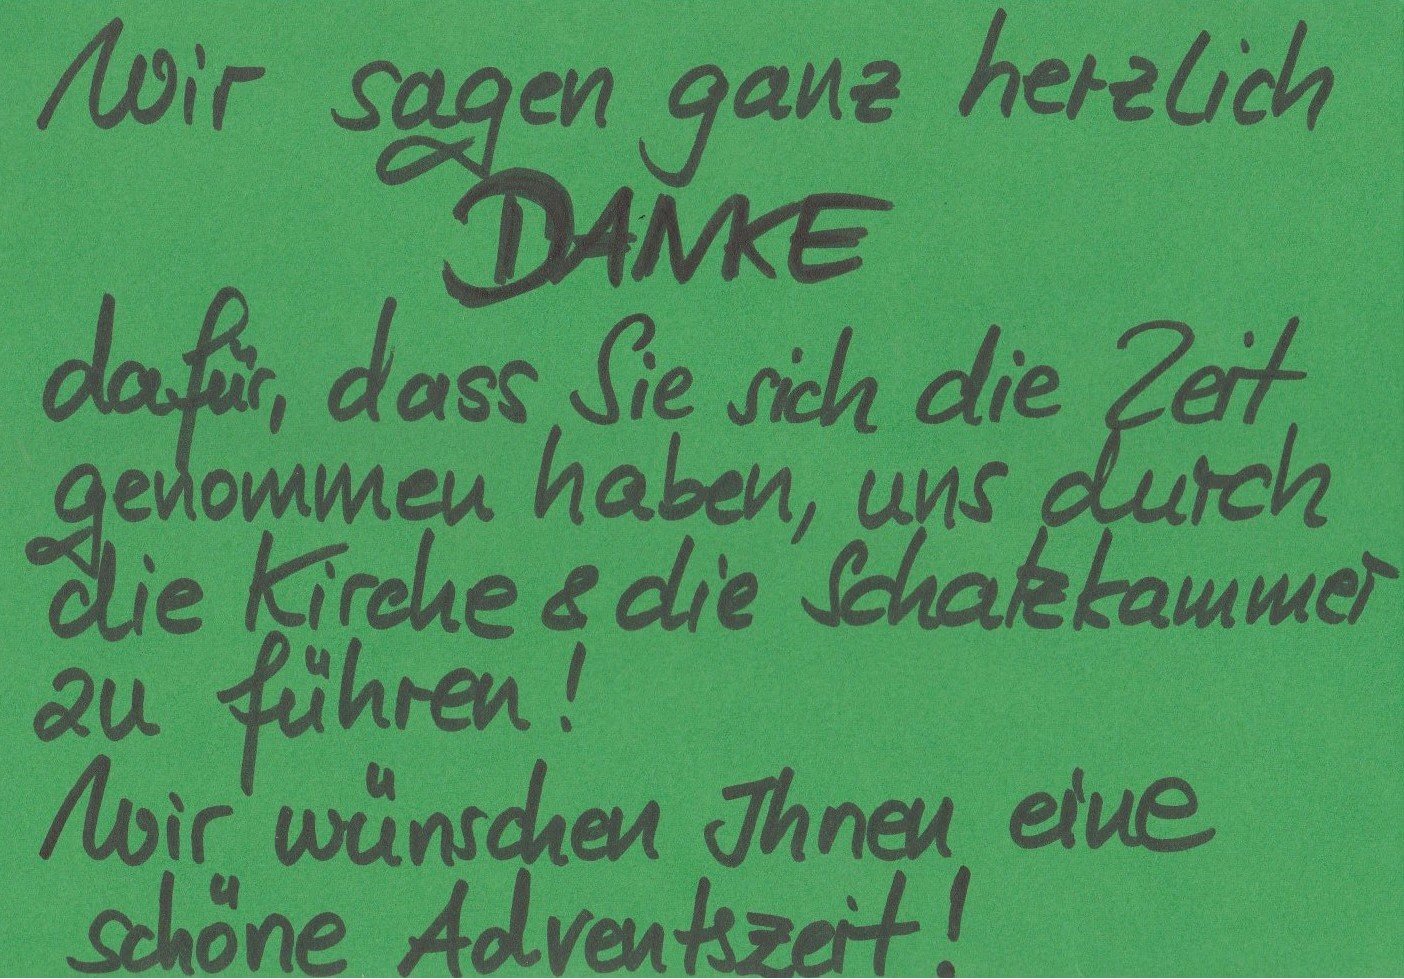 Wir sagen ganz herzlich
DANKE
dafür, dass Sie sich die Zeit
genommen haben, uns durch
die Kirche & die Schatzkammer
zu führen!
Wir wünschen Ihnen eine
schöne Adventszeit!